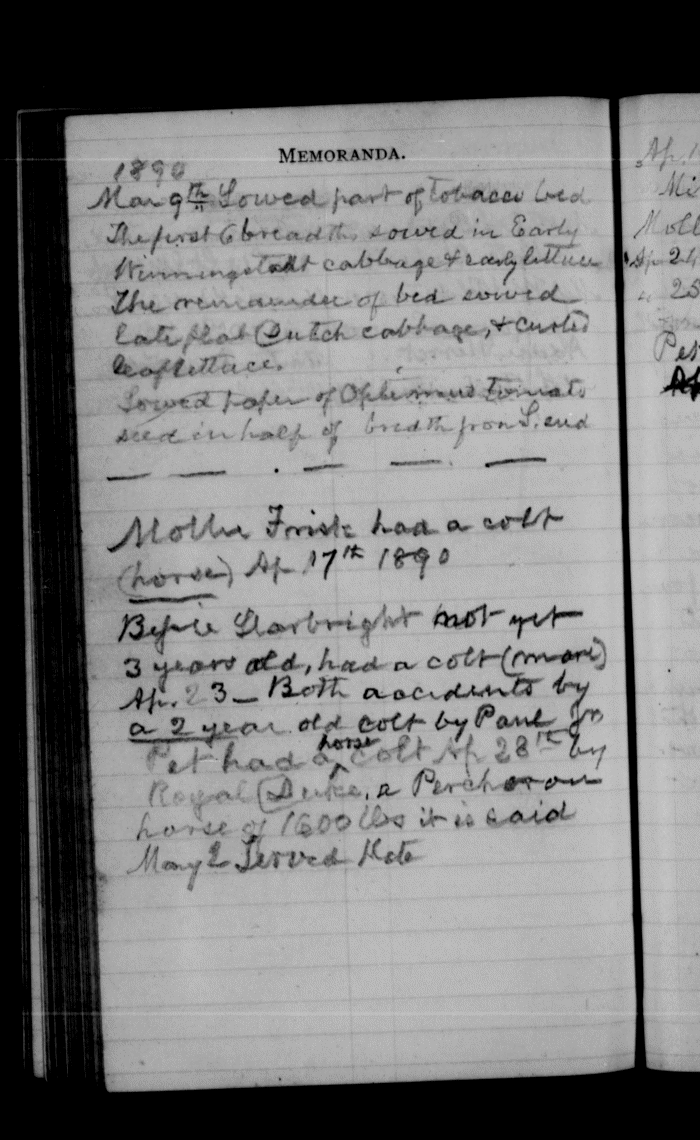 MEMORANDA.
1890
Mar 9th Sowed part of tobacco bed
The first 6 breadths sowed in Early
Winningstadt cabbage & early lettuce
The remainder of bed sowed
late flat Dutch cabbage, & curled
leaf lettuce.
Sowed paper of Optimus Tomato
seed in half of bredth from S. end
Mollie Frisk had a colt
(horse) Ap 17th 1890
Bessie Searbright not yet
3 years old, had a colt (mare)
Ap. 23 _ Both accidents by
a 2 year old colt by Paul Jr
Pet had a horse colt Ap 28th by
Royal Duke, a Percheron
horse of 1600 lbs it is said
May 2 Served Kate
Ap.
Mi
Moll
Ap 24
" 25
Pet